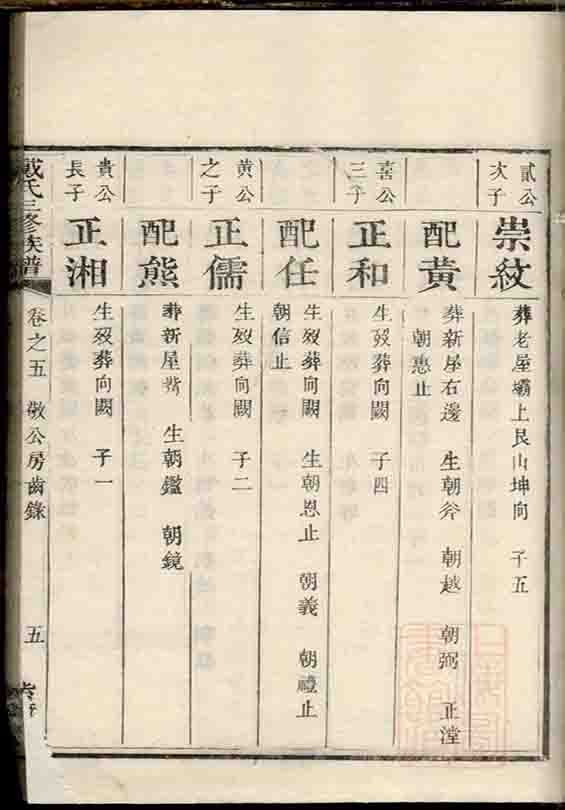 貳公次子
崇紋
葬老屋壩上艮山坤向 子五
配黃
葬新屋右邊 生朝斧 朝越 朝弼 正瀅
朝惠止
喜公三子
正和
生歿葬向闕 子四
配任
生歿葬向闕 生朝恩止 朝義 朝禮止
朝信止
黄公之子
正儒
生歿葬向闕 子二
配熊
葬新屋嘴 生朝鑑 朝鏡
貴公長子
正湘
生歿葬向闕 子一
戴氏三修族譜
卷之五 敬公房齒錄 五